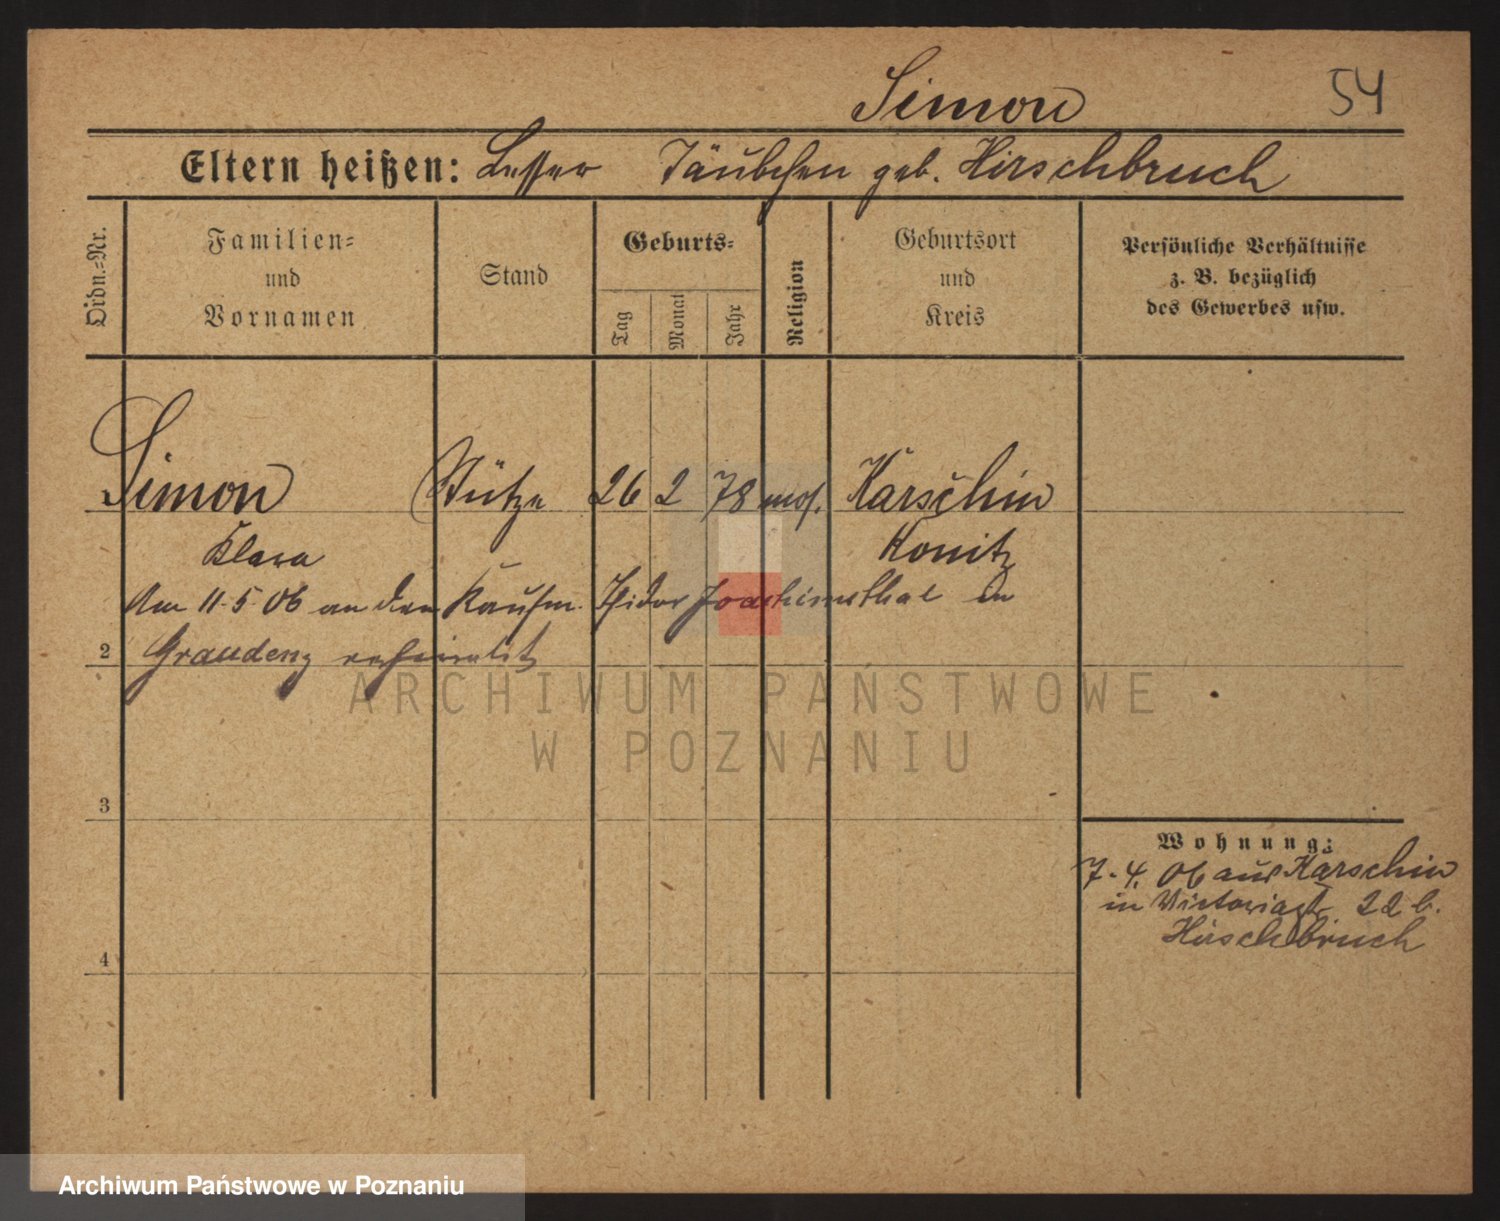 Simon 54
Eltern heißen: Lesser Täubchen geb. Hirschbruch
Ordn.-Nr.
Familien-
und
Vornamen
Stand
Geburts-
Tag
Monat
Jahr
Religion
Geburtsort
und
Kreis
Persönliche Verhältnisse
z. B. bezüglich
des Gewerbes usw.
1 Simon Stütze 26 2 78 mos. Karschin
Klara Konitz
Am 11.5.06 an den Kaufm. Isidor Joachimsthal in
2 Graudenz verheiratet
3
4
Wohnung:
7.4.06 aus Karschin
in Victoriastr. 22 b.
Hirschbruch
ARCHIWUM PAŃSTWOWE
W POZNANIU
Archiwum Państwowe w Poznaniu